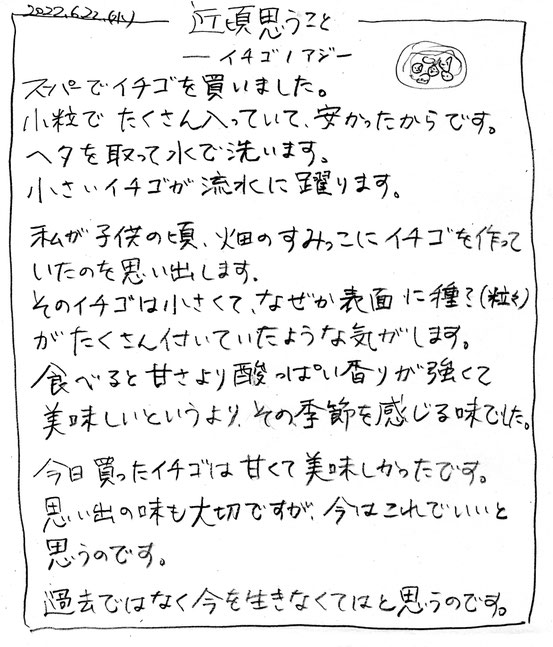 2022.6.22.(水)
近頃思うこと
― イチゴノアジー
スーパーでイチゴを買いました。
小粒で たくさん入っていて、安かったからです。
ヘタを取って水で洗います。
小さいイチゴが流水に躍ります。
私が子供の頃、畑のすみっこにイチゴを作って
いたのを思い出します.
そのイチゴは小さくて、なぜか表面に種?(粒々)
がたくさん付いていたような気がします。
食べると甘さより酸っぱい香りが強くて
美味しいというより、その季節を感じる味でした。
今日買ったイチゴは甘くて美味しかったです。
思い出の味も大切ですが、今はこれでいいと
思うのです。
過去ではなく今を生きなくてはと思うのです。